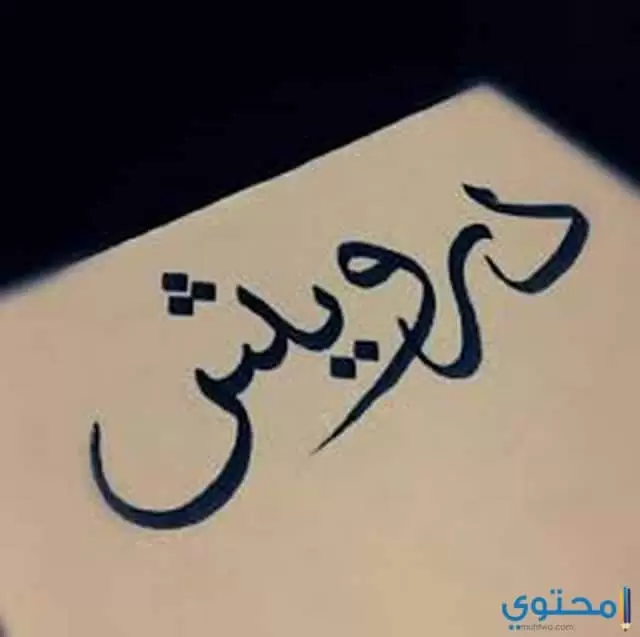 درويش
محتوى
muhtwa.com